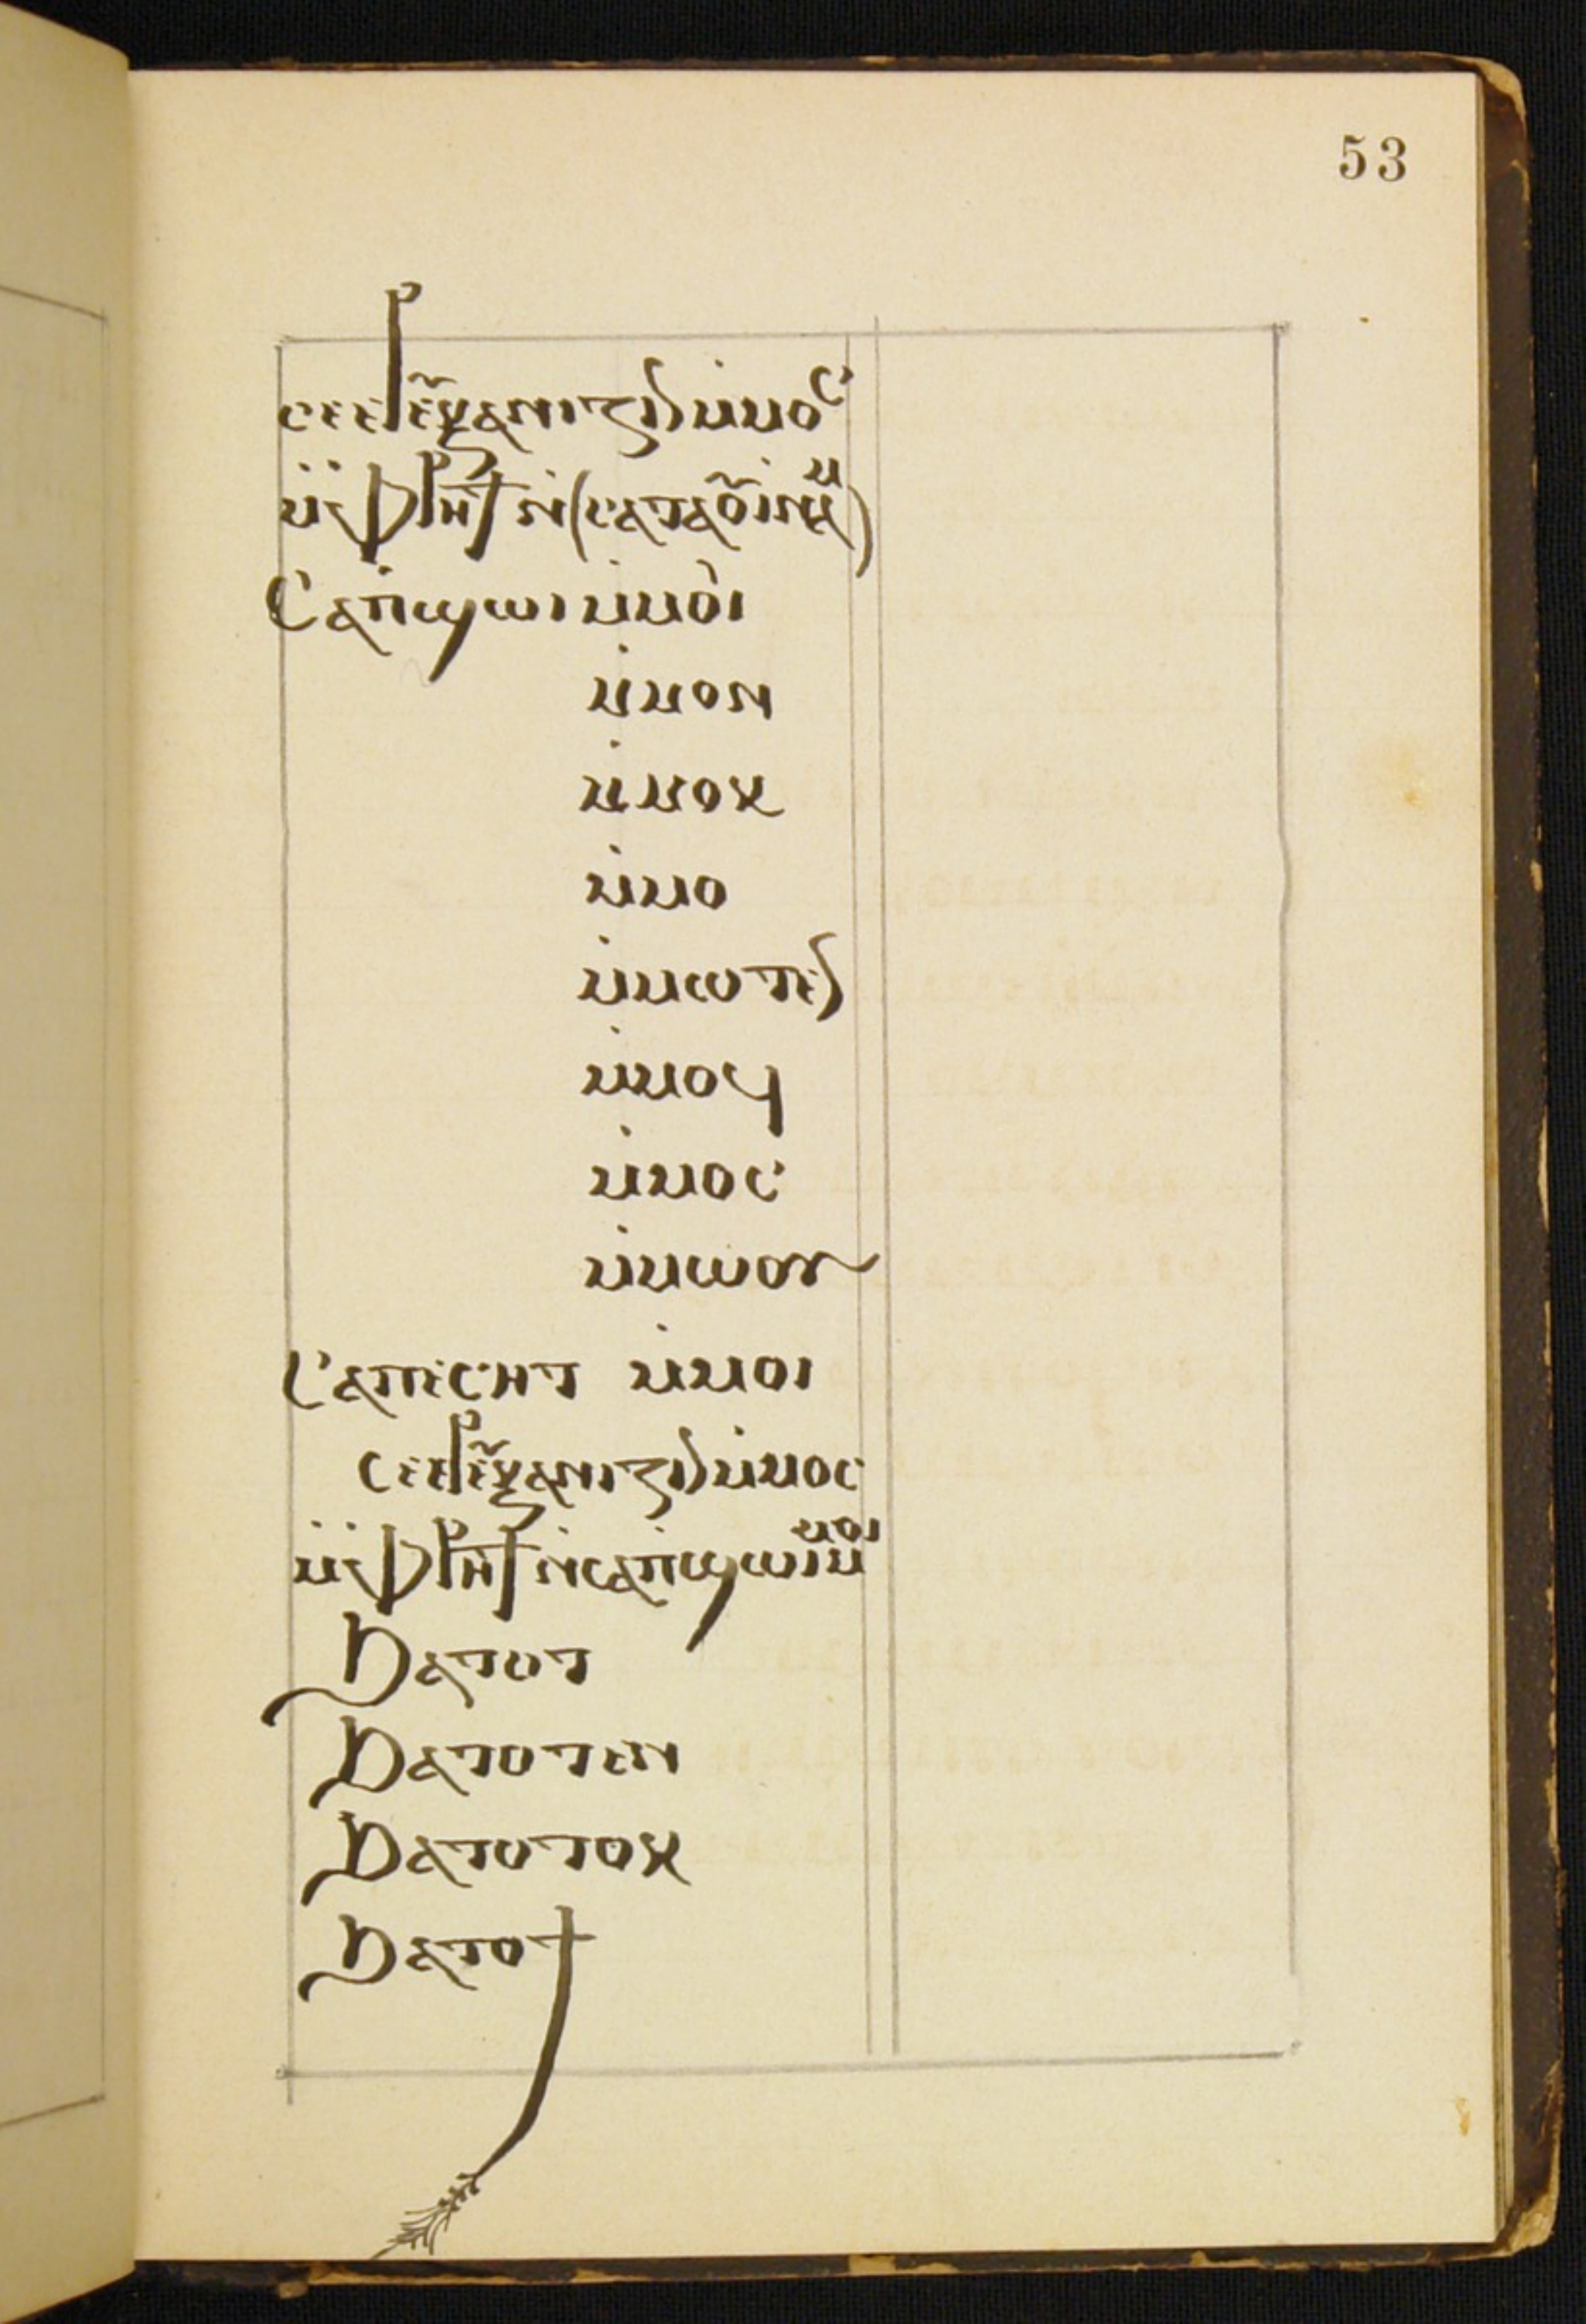 53
ⲥⲉⲉⲣⲉ̃ⲝⲁⲛⲓⲍⲓⲛ ⲙ̇ⲙⲟⲥ
ⲙ̇ⲫ̇ⲣⲏϯ ⲛ̇(ⲥⲁⲧⲁⲟ̃ⲓⲛⲁⲙ)
Ⲥⲁⲡ̇ϣⲱⲓ ⲙ̇ⲙⲟⲓ
ⲙ̇ⲙⲟⲛ
ⲙ̇ⲙⲟⲕ
ⲙ̇ⲙⲟ
ⲙ̇ⲙⲱⲧⲉⲛ
ⲙ̇ⲙⲟϥ
ⲙ̇ⲙⲟⲥ
ⲙ̇ⲙⲱⲟⲩ
Ⲥⲁⲡⲉⲥⲏⲧ ⲙ̇ⲙⲟⲓ
ⲥⲉⲉⲣⲉ̃ⲝⲁⲛⲓⲍⲓⲛ ⲙ̇ⲙⲟⲥ
ⲙ̇ⲫ̇ⲣⲏϯ ⲛ̇ⲥⲁⲡ̇ϣⲱⲓ ⲙ̇ⲙⲟⲓ
Ϧⲁⲧⲟⲧ
Ϧⲁⲧⲟⲧⲉⲛ
Ϧⲁⲧⲟⲧⲟⲕ
Ϧⲁⲧⲟϯ